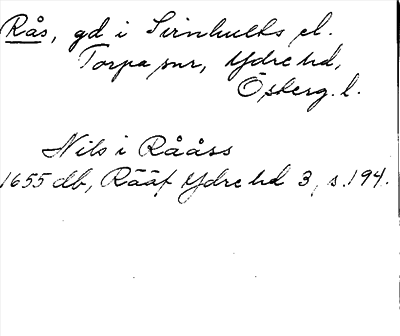 Rås, gd i Sirnhults el.
Torpa snr, Ydre hd,
Östergl.
Nils i Rååss
1655 db, Rääf Ydre hd 3, s. 194.